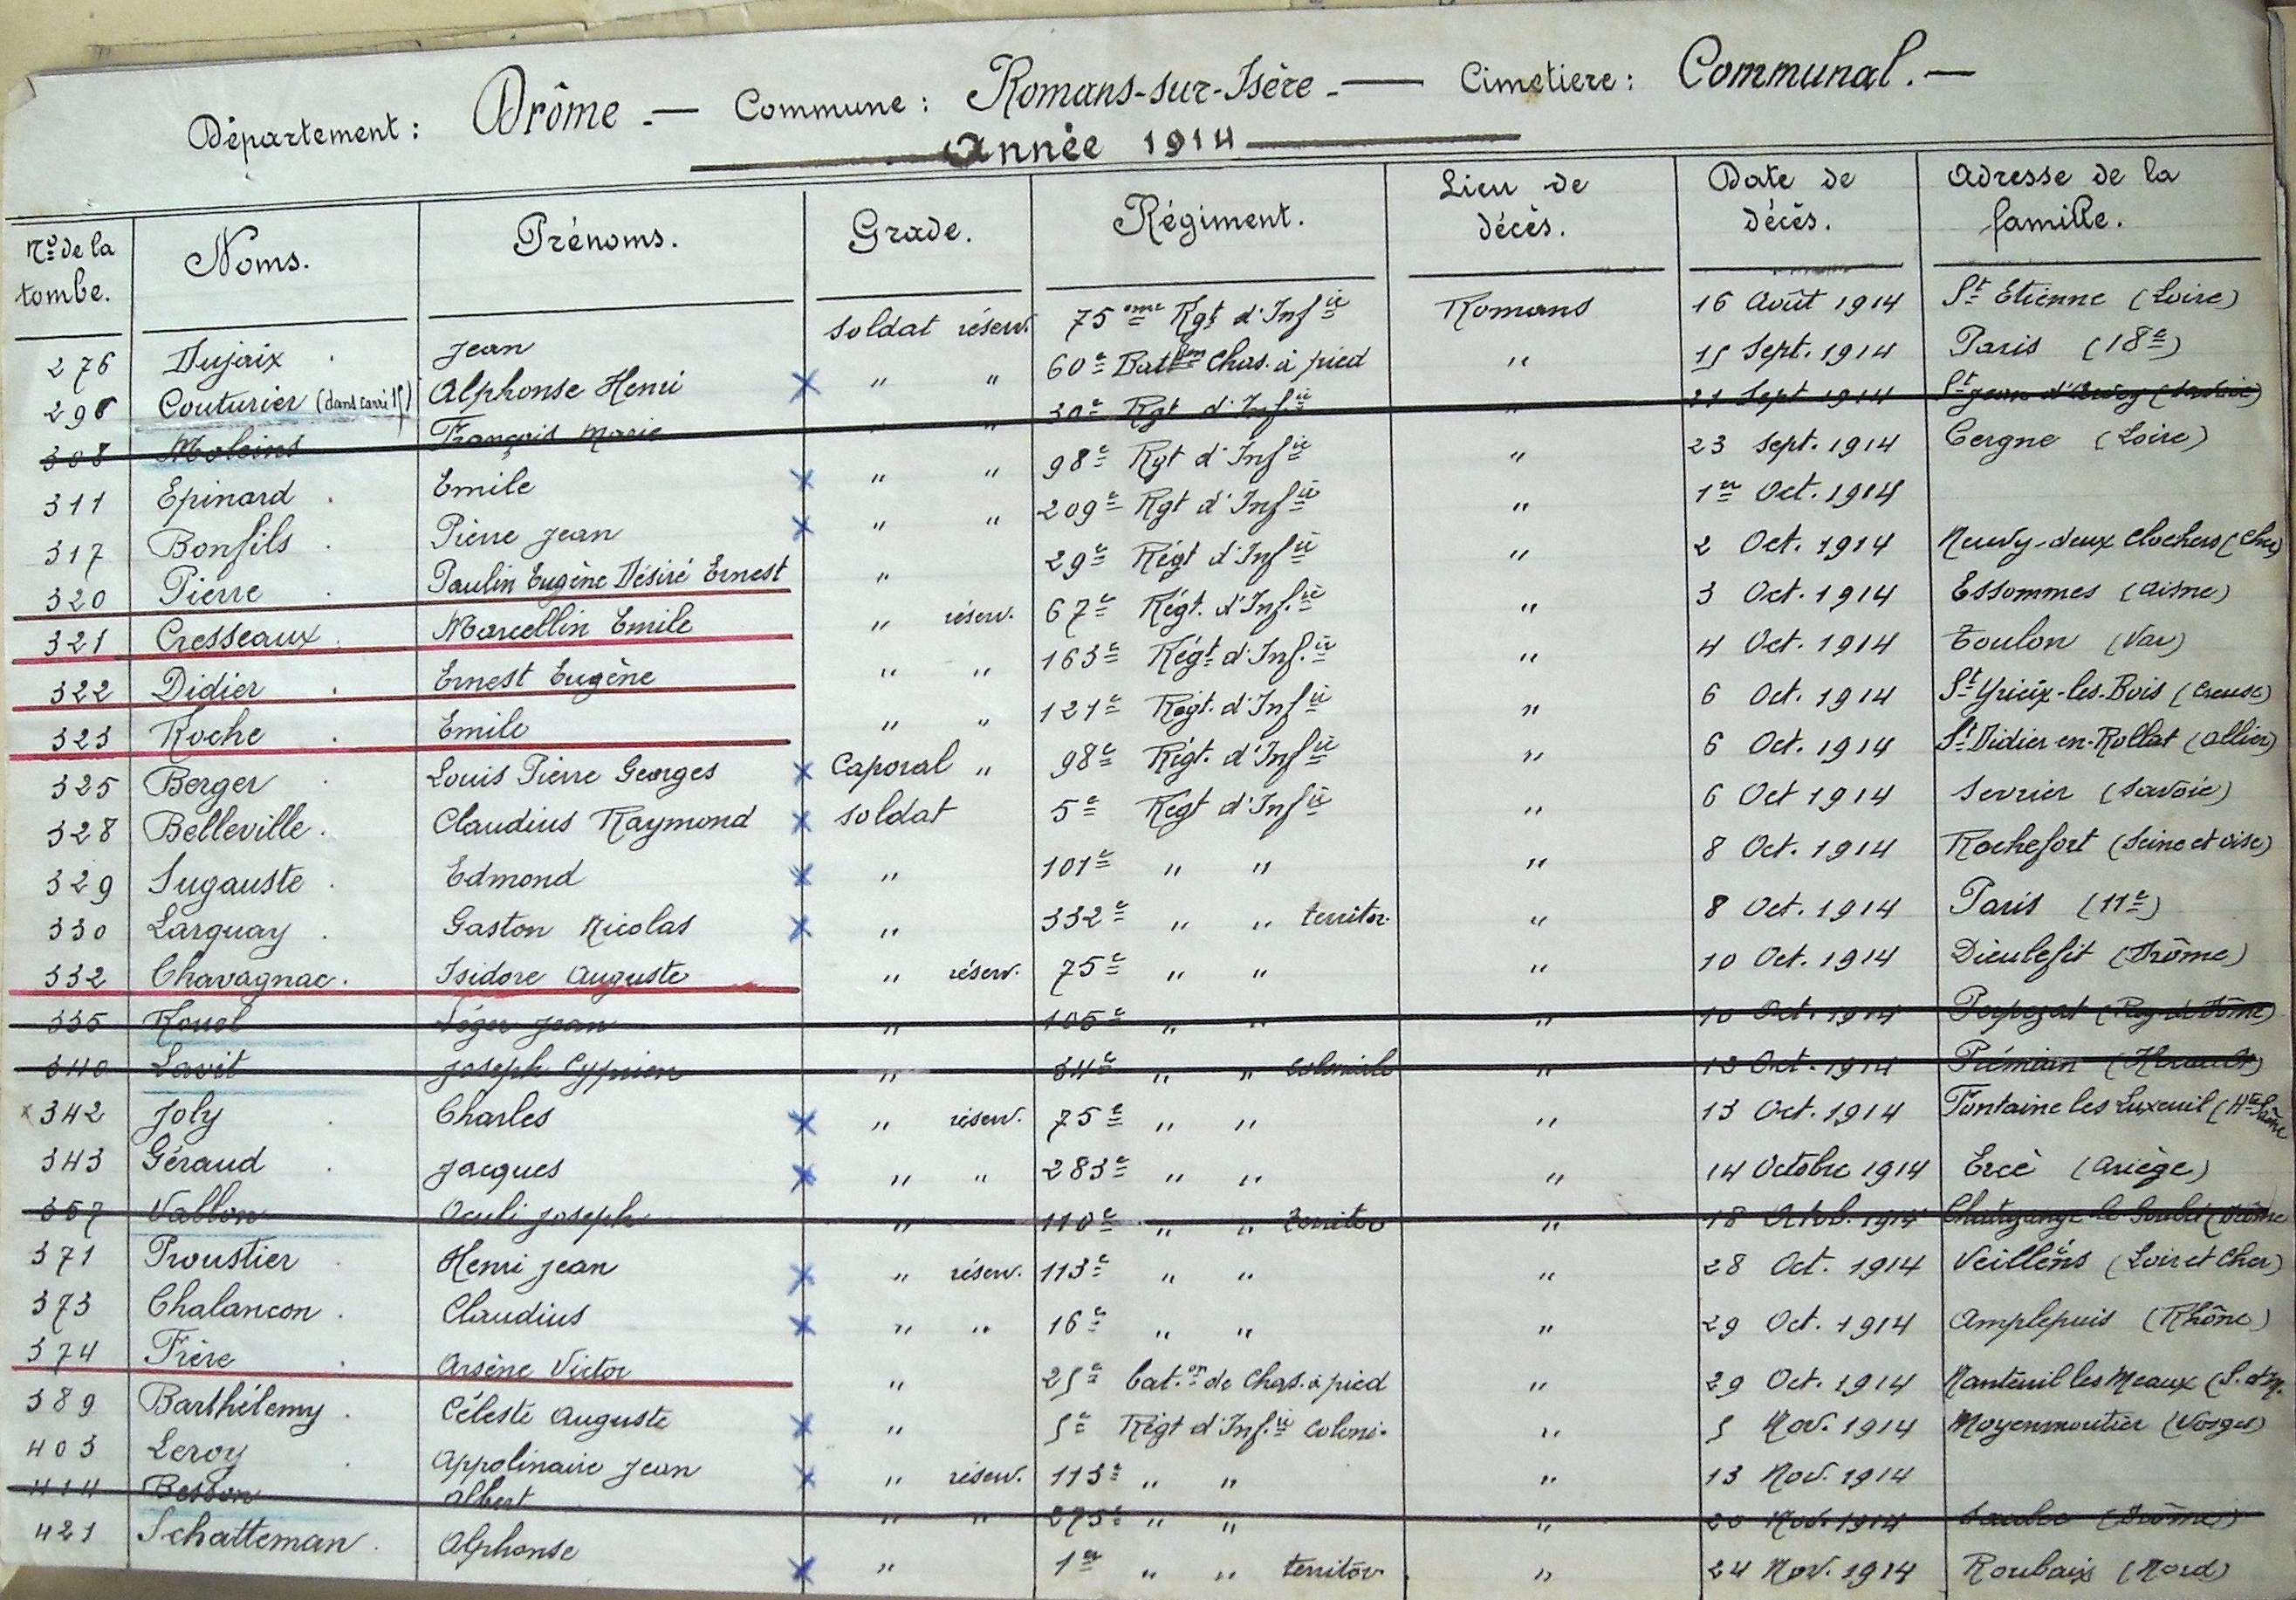 Département : Drôme - Commune : Romans-sur-Isère - Cimetiere : Communal. -
Année 1914
No de la tombe. Noms. Prénoms. Grade. Régiment. Lieu de décès. Date de décès. Adresse de la famille.
276 Dujaix Jean soldat réserv. 75eme Rgt d'Infie Romans 16 Août 1914 St Etienne (Loire)
298 Couturier (dans carré 15) Alphonse Henri " " 60e Batton Chas. à pied " 15 Sept. 1914 Paris (18e)
308 Moleins François Marie " " 30e Rgt d'Infie " 21 Sept 1914 St Jean d'Arvey (Savoie)
311 Epinard Emile " " 98e Rgt d'Infie " 23 Sept. 1914 Cergne (Loire)
317 Bonfils Pierre Jean " " 209e Rgt d'Infie " 1er Oct. 1914
320 Pierre Paulin Eugène Désiré Ernest " 29e Régt d'Infie " 2 Oct. 1914 Neuvy-deux Clochers (Cher)
321 Cresseaux Marcellin Emile " réserv. 67e Régt. d'Inf.ie " 3 Oct. 1914 Essommes (Aisne)
322 Didier Ernest Eugène " " 163e Régt d'Inf.ie " 4 Oct. 1914 Toulon (Var)
323 Roche Emile " " 121e Régt. d'Infie " 6 Oct. 1914 St Yrieix-les-Bois (Creuse)
325 Berger Louis Pierre Georges Caporal " 98e Régt. d'Infie " 6 Oct. 1914 St Didier-en-Rollat (Allier)
328 Belleville. Claudius Raymond soldat 5e Régt d'Infie " 6 Oct 1914 Sevrier (Savoie)
329 Sugauste Edmond " 101e " " " 8 Oct. 1914 Rochefort (Seine et Oise)
330 Larguay Gaston Nicolas " 332e " " territor. " 8 Oct. 1914 Paris (11e)
332 Chavagnac. Isidore Auguste " réserv. 75e " " " 10 Oct. 1914 Dieulefit (Drôme)
335 Rouel Léger Jean " 105e " " " 10 Oct. 1914 (Puy de Dôme)
340 Lavit Joseph Cyprien " 34e " " coloniale " 13 Oct. 1914 Prémian (Hérault)
342 Joly Charles " réserv. 75e " " " 13 Oct. 1914 Fontaine les Luxeuil (Hte Saône
343 Géraud Jacques " " 283e " " " 14 Octobre 1914 Ercé (Ariège)
357 Vallon Oculi Joseph " 110e " " Territor " 18 Octob. 1914 Chatuzange le Goubet (Drôme
371 Proustier Henri Jean " réserv. 113e " " " 28 Oct. 1914 Veilléns (Loir et Cher)
373 Chalancon. Claudius " " 16e " " " 29 Oct. 1914 Amplepuis (Rhône)
374 Frère Arsène Victor " 25e bat.on de Chas. à pied " 29 Oct. 1914 Nanteuil les Meaux (S. et M.
389 Barthélemy. Céleste Auguste " 5e Régt d'Inf.ie coloni. " 5 Nov. 1914 Moyenmoutier (Vosges)
403 Leroy Appolinaire Jean " réserv. 113e " " " 13 Nov. 1914
414 Besson Albert " " 275e " " " 20 Nov. 1914 (Drôme)
421 Schatteman. Alphonse " 1er " " territor. " 24 Nov. 1914 Roubaix (Nord)